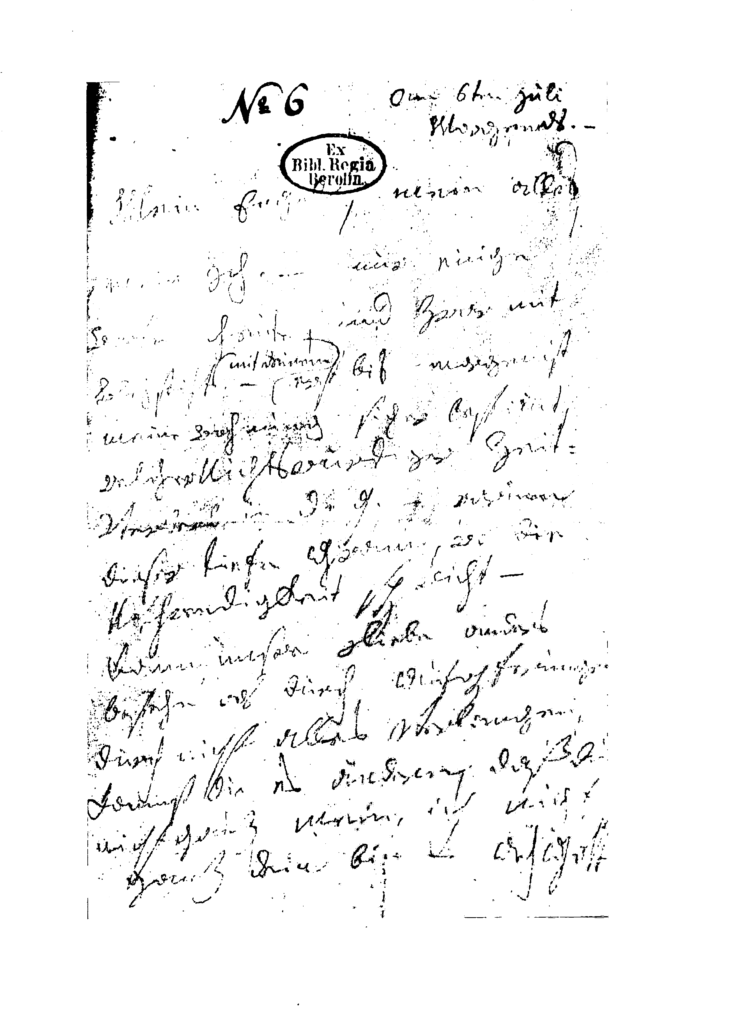 No 6
am 6ten Juli
Morgends. –
Ex
Bibl. Regia
Berolin.
Mein Engel, mein alles
mein Ich. – nur einige
Worte heute, und zwar mit
Bleystift – (mit deinem) erst bis morgen ist
meine Wohnung sicher bestimmt,
welcher Nichtswürdiger Zeit-
Verderb in d. g. – warum
dieser tiefe Gram, wo die
Nothwendigkeit spricht –
Kann unsre Liebe anders
bestehn als durch Aufopferungen,
durch nicht alles verlangen,
kannst du es ändern, daß du
nicht ganz mein, ich nicht
ganz dein bin – Ach Gott